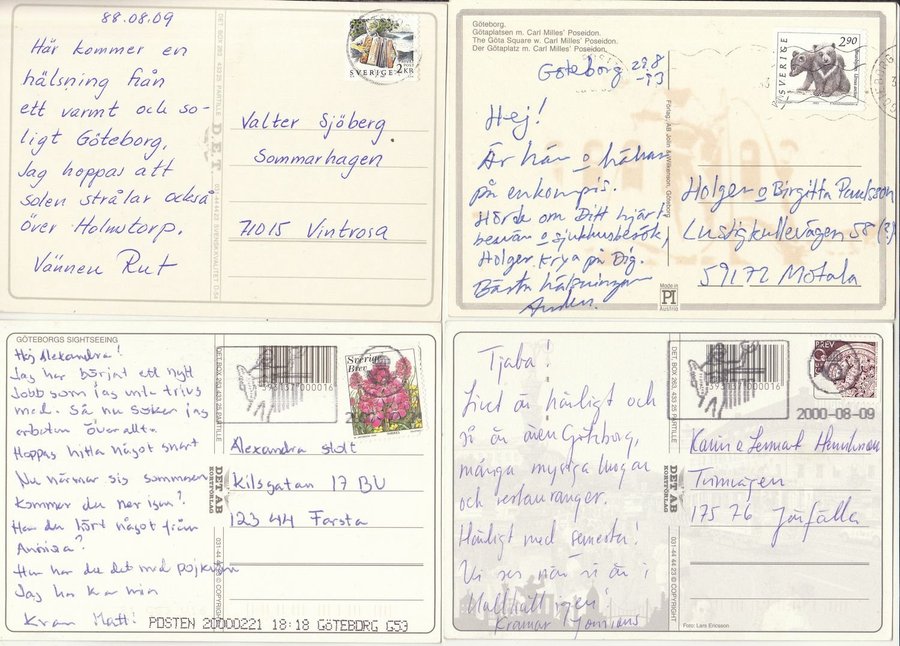 88.08.09
Här kommer en
hälsning från
ett varmt och so-
ligt Göteborg,
Jag hoppas att
solen strålar också
över Holmstorp.
Vännen Rut
DET. BOX 263, 433 25 PARTILLE
DET
SVERIGE 2KR
Valter Sjöberg
Sommarhagen
71015 Vintrosa
Göteborg.
Götaplatsen m. Carl Milles' Poseidon.
The Göta Square w. Carl Milles' Poseidon.
Der Götaplatz m. Carl Milles' Poseidon.
Göteborg 29.8
-93
Hej!
Är här o hälsar
på en kompis.
Hörde om Ditt hjärt
besvär o sjukhusbesök,
Holger. Krya på Dig.
Bästa hälsningar
Förlag: AB John Göteborg
Made in
PI
Austria
SVERIGE
290
Holger o Birgitta Paulsson
Lustigkullevägen 58 (3)
59172 Motala
GÖTEBORGS SIGHTSEEING
Hej Alexandra!
Jag har börjat ett nytt
Jobb som jag inte trivs
med. Så nu söker jag
arbeten överallt.
Hoppas hitta något snart
Nu närmar sig sommaren
Kommer du ner igen?
Har du hört något från
Hur har du det med pojkarna
Jag har kar min
Kram Matti!
DET. BOX 263, 433 25 PARTILLE
DET AB
KORTFÖRLAG
031-44 44 23 © COPYRIGHT
9393137000016
Sverige
Brev
Alexandra
Kilsgatan 17 BV
123 44 Farsta
POSTEN 20000221 18:18 GÖTEBORG G53
Tjaba!
Livet är härligt och
så är även Göteborg,
många mysiga
och restauranger.
Härligt med semester!
Vi ses när vi är i
igen!
Kramar
DET. BOX 263, 433 25 PARTILLE
DET AB
KORTFÖRLAG
031-44 44 23 © COPYRIGHT
393137000016
BREV
2000-08-09
Karin o Lennart
175 76 Järfälla
Foto: Lars Ericsson